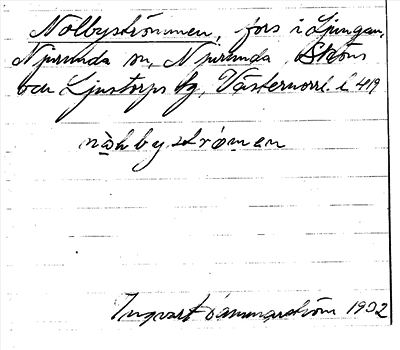 Nolbyströmmen, fors i Ljungan,
Njurunda sn, Njurunda, Sköns
och Ljustorps tg, Västernorrl. l. 419
nàhbyströmen
Ingvart 1932